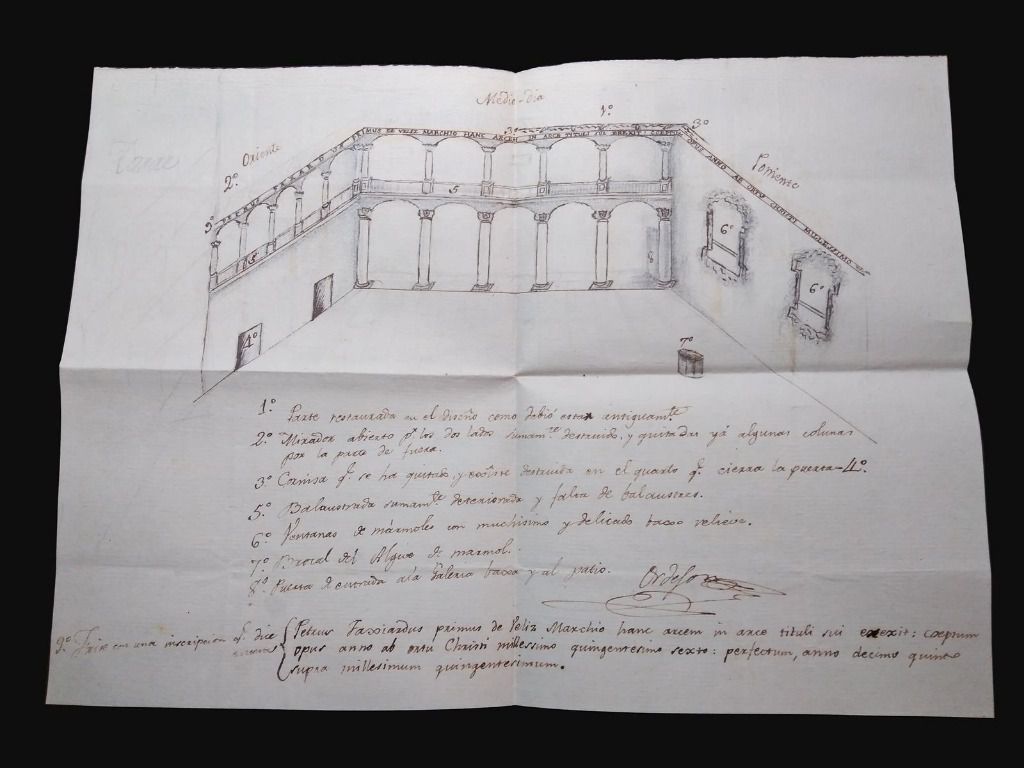 Medio-dia
1º
3º
3º
2º Oriente
Poniente
9º
PRIMUS DE VELIZ MARCHIO HANC ARCEM IN ARCE TITULI SUI EREXIT: COEPTUM
OPUS ANNO AB ORTU CHRISTI MILLESSIMO
5
5º
6º
6º
8º
4º
7º
1º Parte restaurada en el diseño como debió estar antiguamte
2º Mirador abierto pr los dos lados sumamte destruido, y quitadas yá algunas colunas
por la parte de fuera.
3º Cornisa qe se ha quitado, y existe destruida en el quarto qe cierra la puerta-4º.
5º Balaustrada sumamte deteriorada y falta de balaustres.
6º Ventanas de mármoles con muchisimo y delicado baxo relieve.
7º Brocal del Algive de marmol.
8º Puerta de entrada a la Galeria baxa y al patio.
9º Frise con una inscripcion qe dice
Petrus Faxiardus primus de Veliz Marchio hanc arcem in arce tituli sui erexit: cœptum
opus anno ab ortu Christi millessimo quingentesimo sexto: perfectum, anno decimo quinto
supra millesimum quingentesimum.